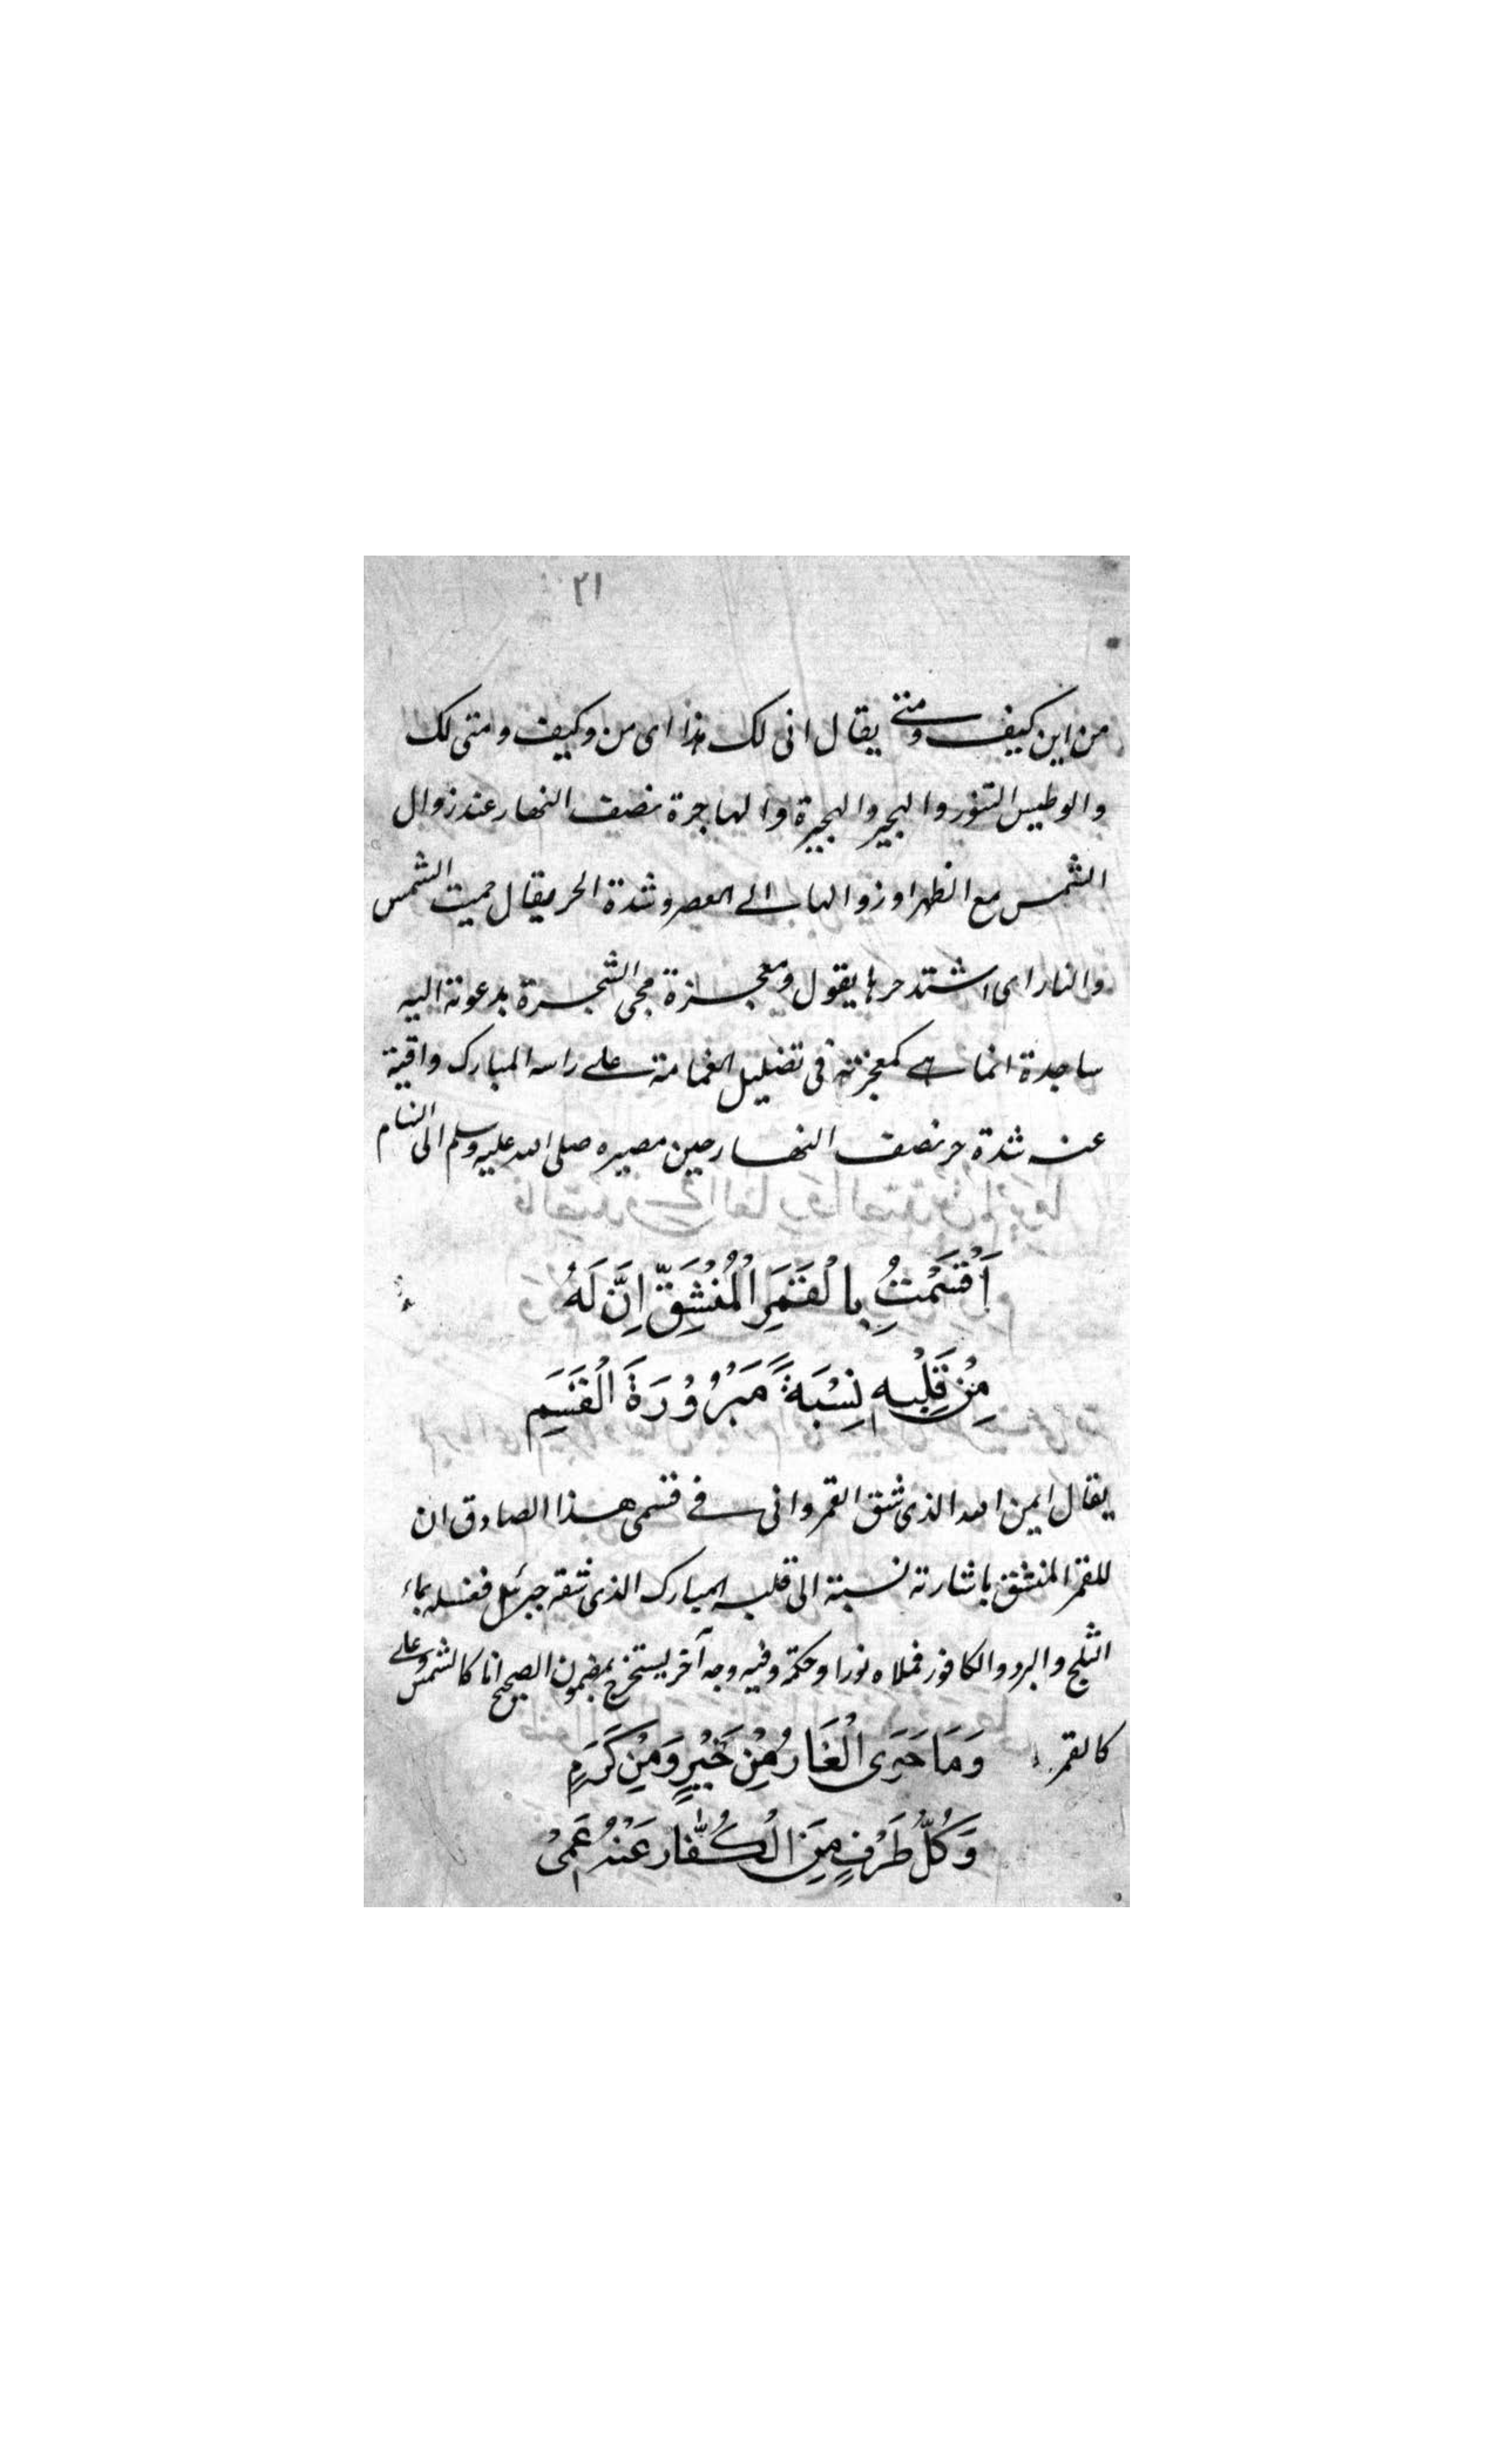 ٢١
من اين كيف ومتى يقال انى لك هذا اى من وكيف ومتى لك
والوطيس التنور والهجير والهجيرة والهاجرة نصف النهار عند زوال
الشمس مع الظهر او زوالها الى العصر وشدة الحر يقال حميت الشمس
والنار اى اشتد حرها يقول ومعجزة مجى الشجرة بدعوته اليه
ساجدة انما هے كمعجزته فى تضليل الغمامة علے راسه المبارك واقية
عنه شدة حر نصف النهار حين مصيره صلى الله عليه وسلم الى الشام
اَقْسَمْتُ بِالْقَمَرِ الْمُنْشَقِّ اِنَّ لَهُ
مِنْ قَلْبِهِ نِسْبَةً مَبْرُوْرَةَ الْقَسَمِ
يقال ايمن الله الذى شق القمر وانى فے قسمى هذا الصادق ان
للقمر المنشق باشارته نسبة الى قلبه المبارك الذى شقه جبرئيل فغسله بماء
الثلج والبرد والكافور فملاه نورا وحكمة وفيه وجه آخر يستخرج بمضمون الصحيح انا كالشمس وعلے
كالقمر وَمَا حَوَى الْغَارُ مِنْ خَيْرٍ وَمِنْ كَرَمِ
وَكُلُّ طَرْفٍ مِنَ الْكُفَّارِ عَنْهُ عَمِىْ